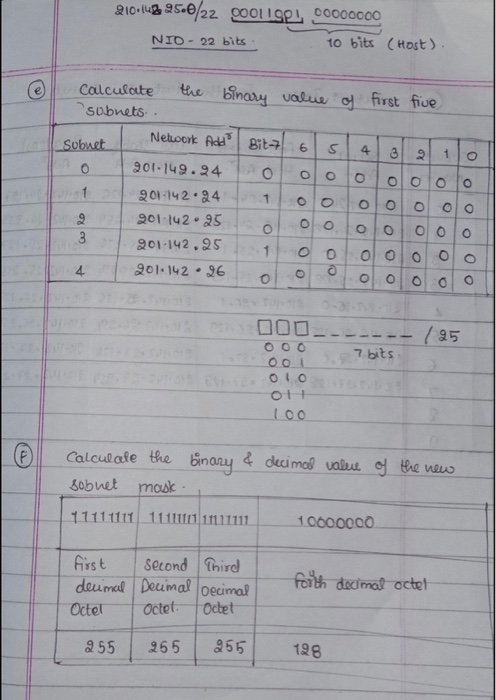 210.142.25.0/22 00011001, 00000000
NID - 22 bits. 10 bits (Host).
(e) Calculate the binary value of first five
subnets..
Subnet Network Addr Bit-7 6 5 4 3 2 1 0
0 201.149.24 0 0 0 0 0 0 0 0
1 201.142.24 1 0 0 0 0 0 0 0
2 201.142.25 0 0 0 0 0 0 0 0
3 201.142.25 1 0 0 0 0 0 0 0
4 201.142.26 0 0 0 0 0 0 0 0
□□□------- /25
0 0 0 7 bits.
0 0 1
0 1 0
0 1 1
1 0 0
(f) Calculate the binary & decimal value of the new
subnet mask.
11111111 11111111 11111111 10000000
First Second Third
decimal Decimal Decimal Forth decimal octel
Octel Octel. Octet
255 265 255 128